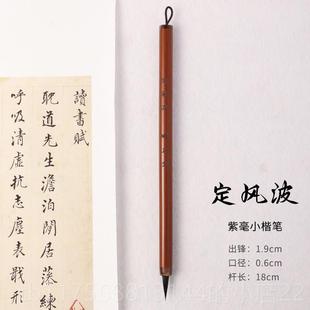 讀書賦
耽道先生澹泊閒居藻練
呼吸清虛抗志雲表戢形
定风波
紫毫小楷笔
出锋：1.9cm
口径：0.6cm
杆长：18cm